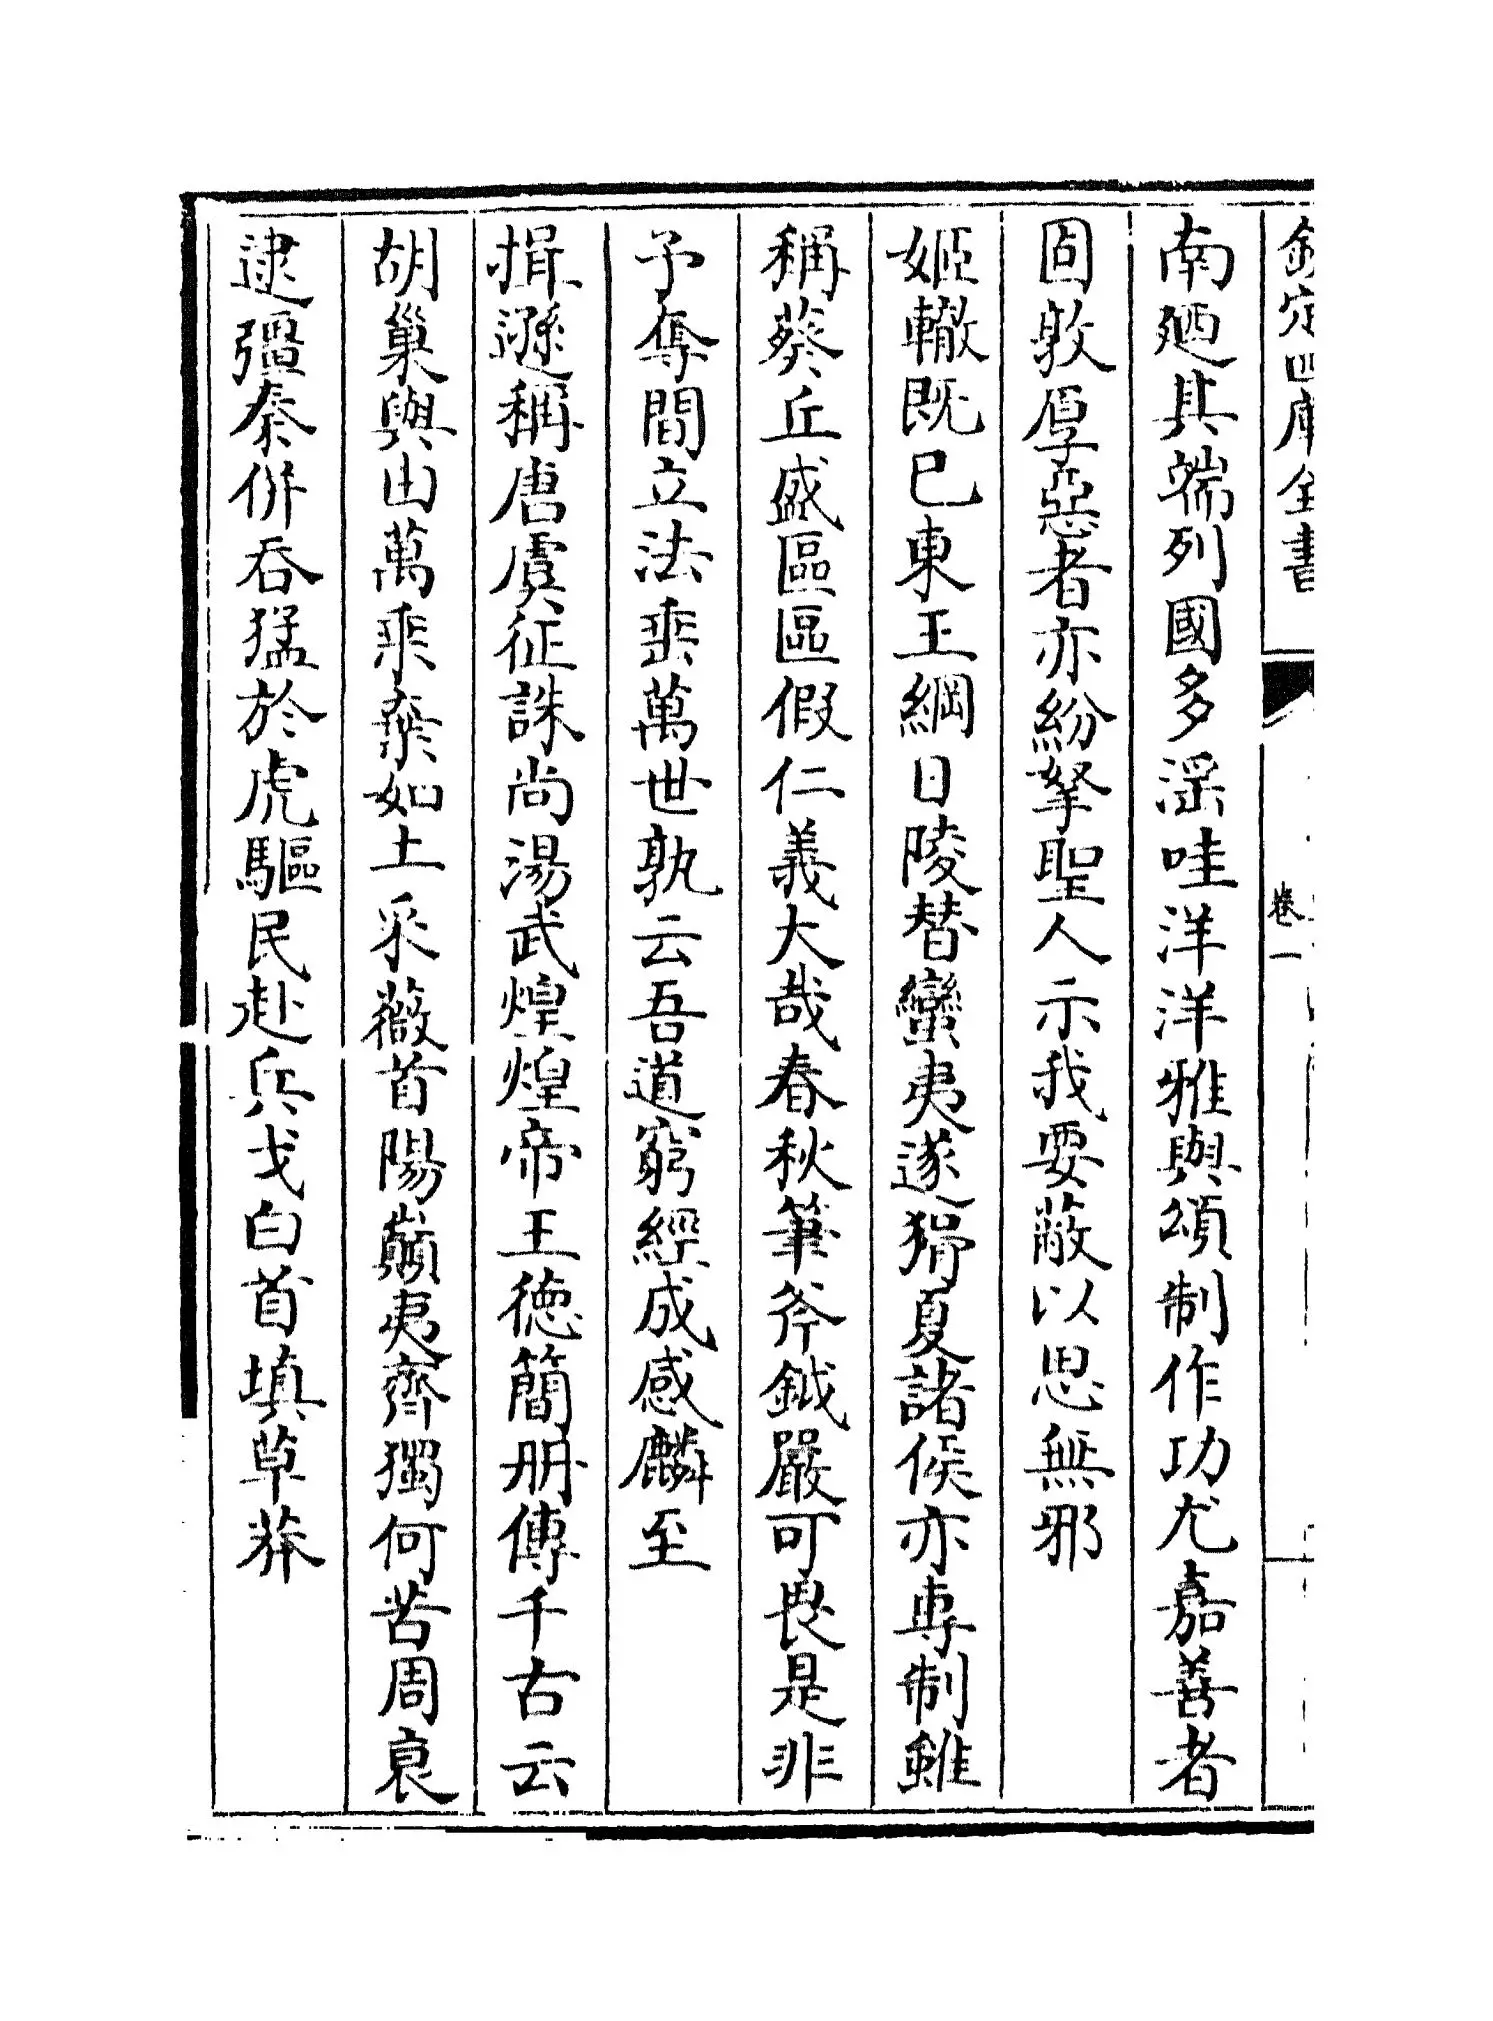 欽定四庫全書
卷一
南廼其端列國多滛哇洋洋雅與頌制作功尤嘉善者
固敦厚惡者亦紛拏聖人示我要蔽以思無邪
姬轍既已東王綱日陵替蠻夷遂猾夏諸侯亦専制雖
稱葵丘盛區區假仁義大哉春秋筆斧鉞嚴可畏是非
予奪間立法垂萬世孰云吾道窮經成感麟至
揖遜稱唐虞征誅尚湯武煌煌帝王徳簡册傳千古云
胡巢與由萬乗棄如土采薇首陽巔夷齊獨何苦周衰
逮彊秦併吞猛於虎驅民赴兵戈白首填草莽